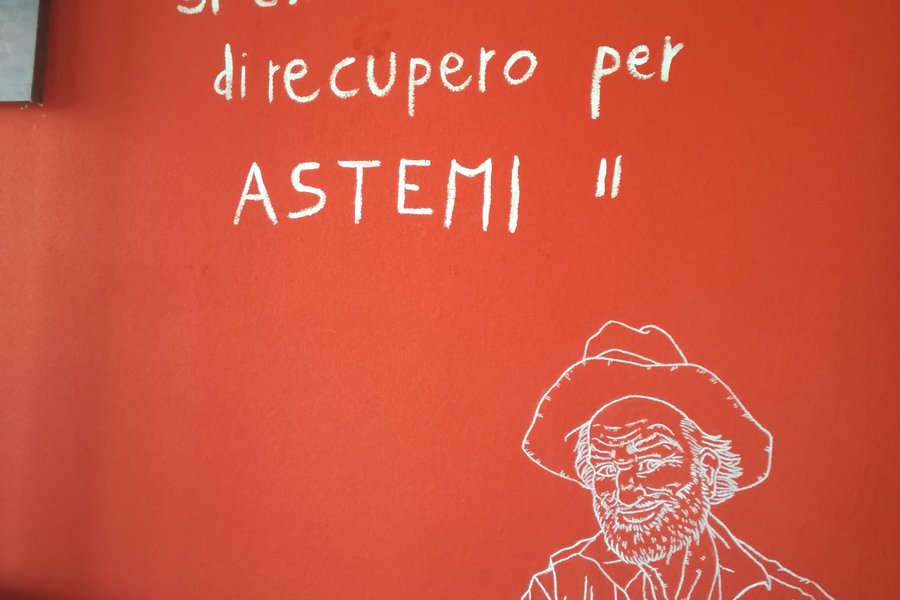 di recupero per
ASTEMI "